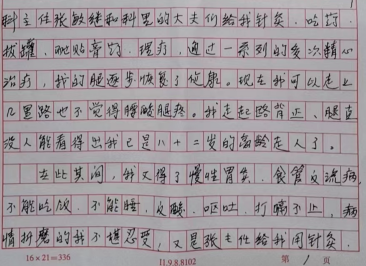 科主任张敏继和科里的大夫们给我针灸、吃药、
拔罐、贴膏药、理疗，通过一系列的多次精心
治疗，我的腿逐步恢复了健康。现在我可以走上
几里路也不觉得腰酸腿疼。我走起路背正、腿直
没人能看得出我已是八十二岁的高龄老人了。
在此其间，我又得了慢性胃炎、食管反流病，
不能吃饭、不能睡、反酸、呕吐、打嗝不止，病
情折磨的我不堪忍受，又是张主任给我用针灸、
16×21=336 11.9.8.8102 第1页